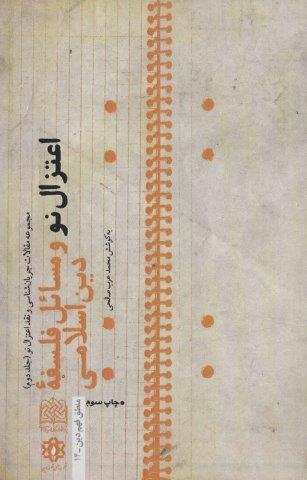 مجموعه مقالات جریان‌شناسی و نقد اعتزال نو (جلد دوم)
اعتزال نو
و مسائل فلسفهٔ
دین اسلامی
به کوشش محمد عرب صالحی
•چاپ سوم
منطق فهم دین-۱۲